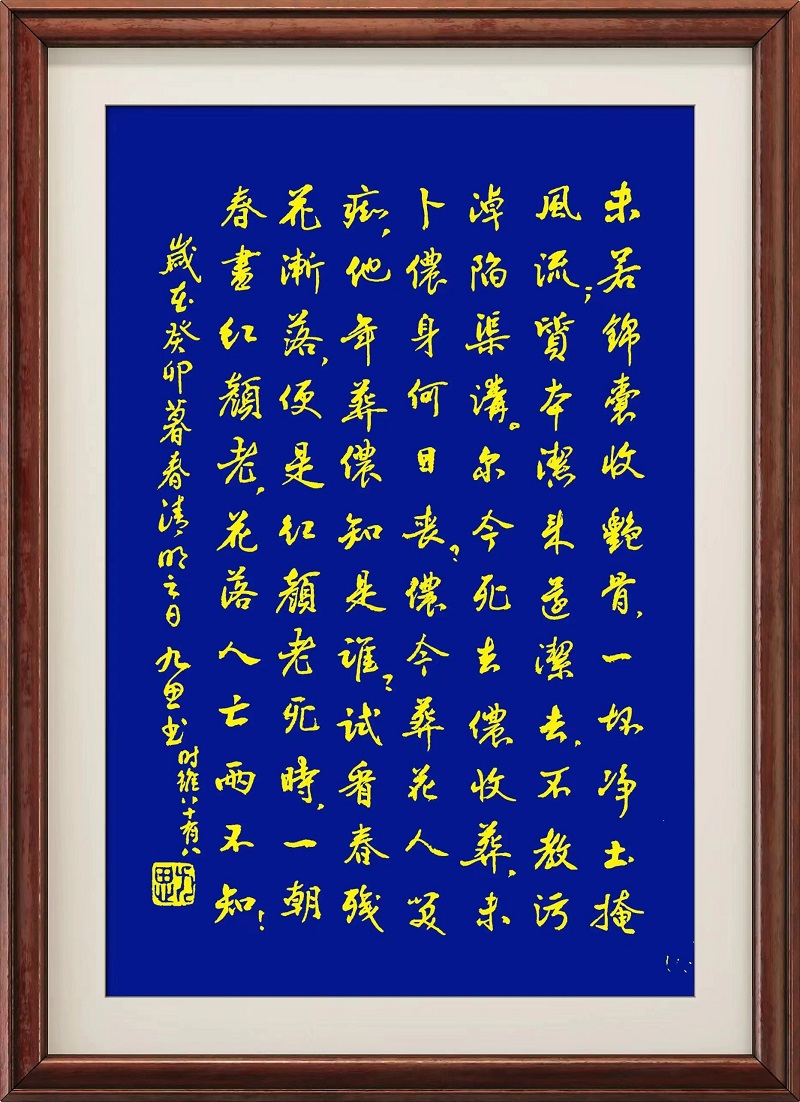 未若錦囊收艷骨,一抔净土掩
風流;質本潔来還潔去,不教污
淖陷渠溝。尔今死去儂收葬,未
卜儂身何日喪?儂今葬花人笑
痴,他年葬儂知是誰?试看春殘
花漸落,便是红顏老死時,一朝
春盡红顏老,花落人亡兩不知!
歲在癸卯暮春清明之日 九思书 时維八十有八
九思